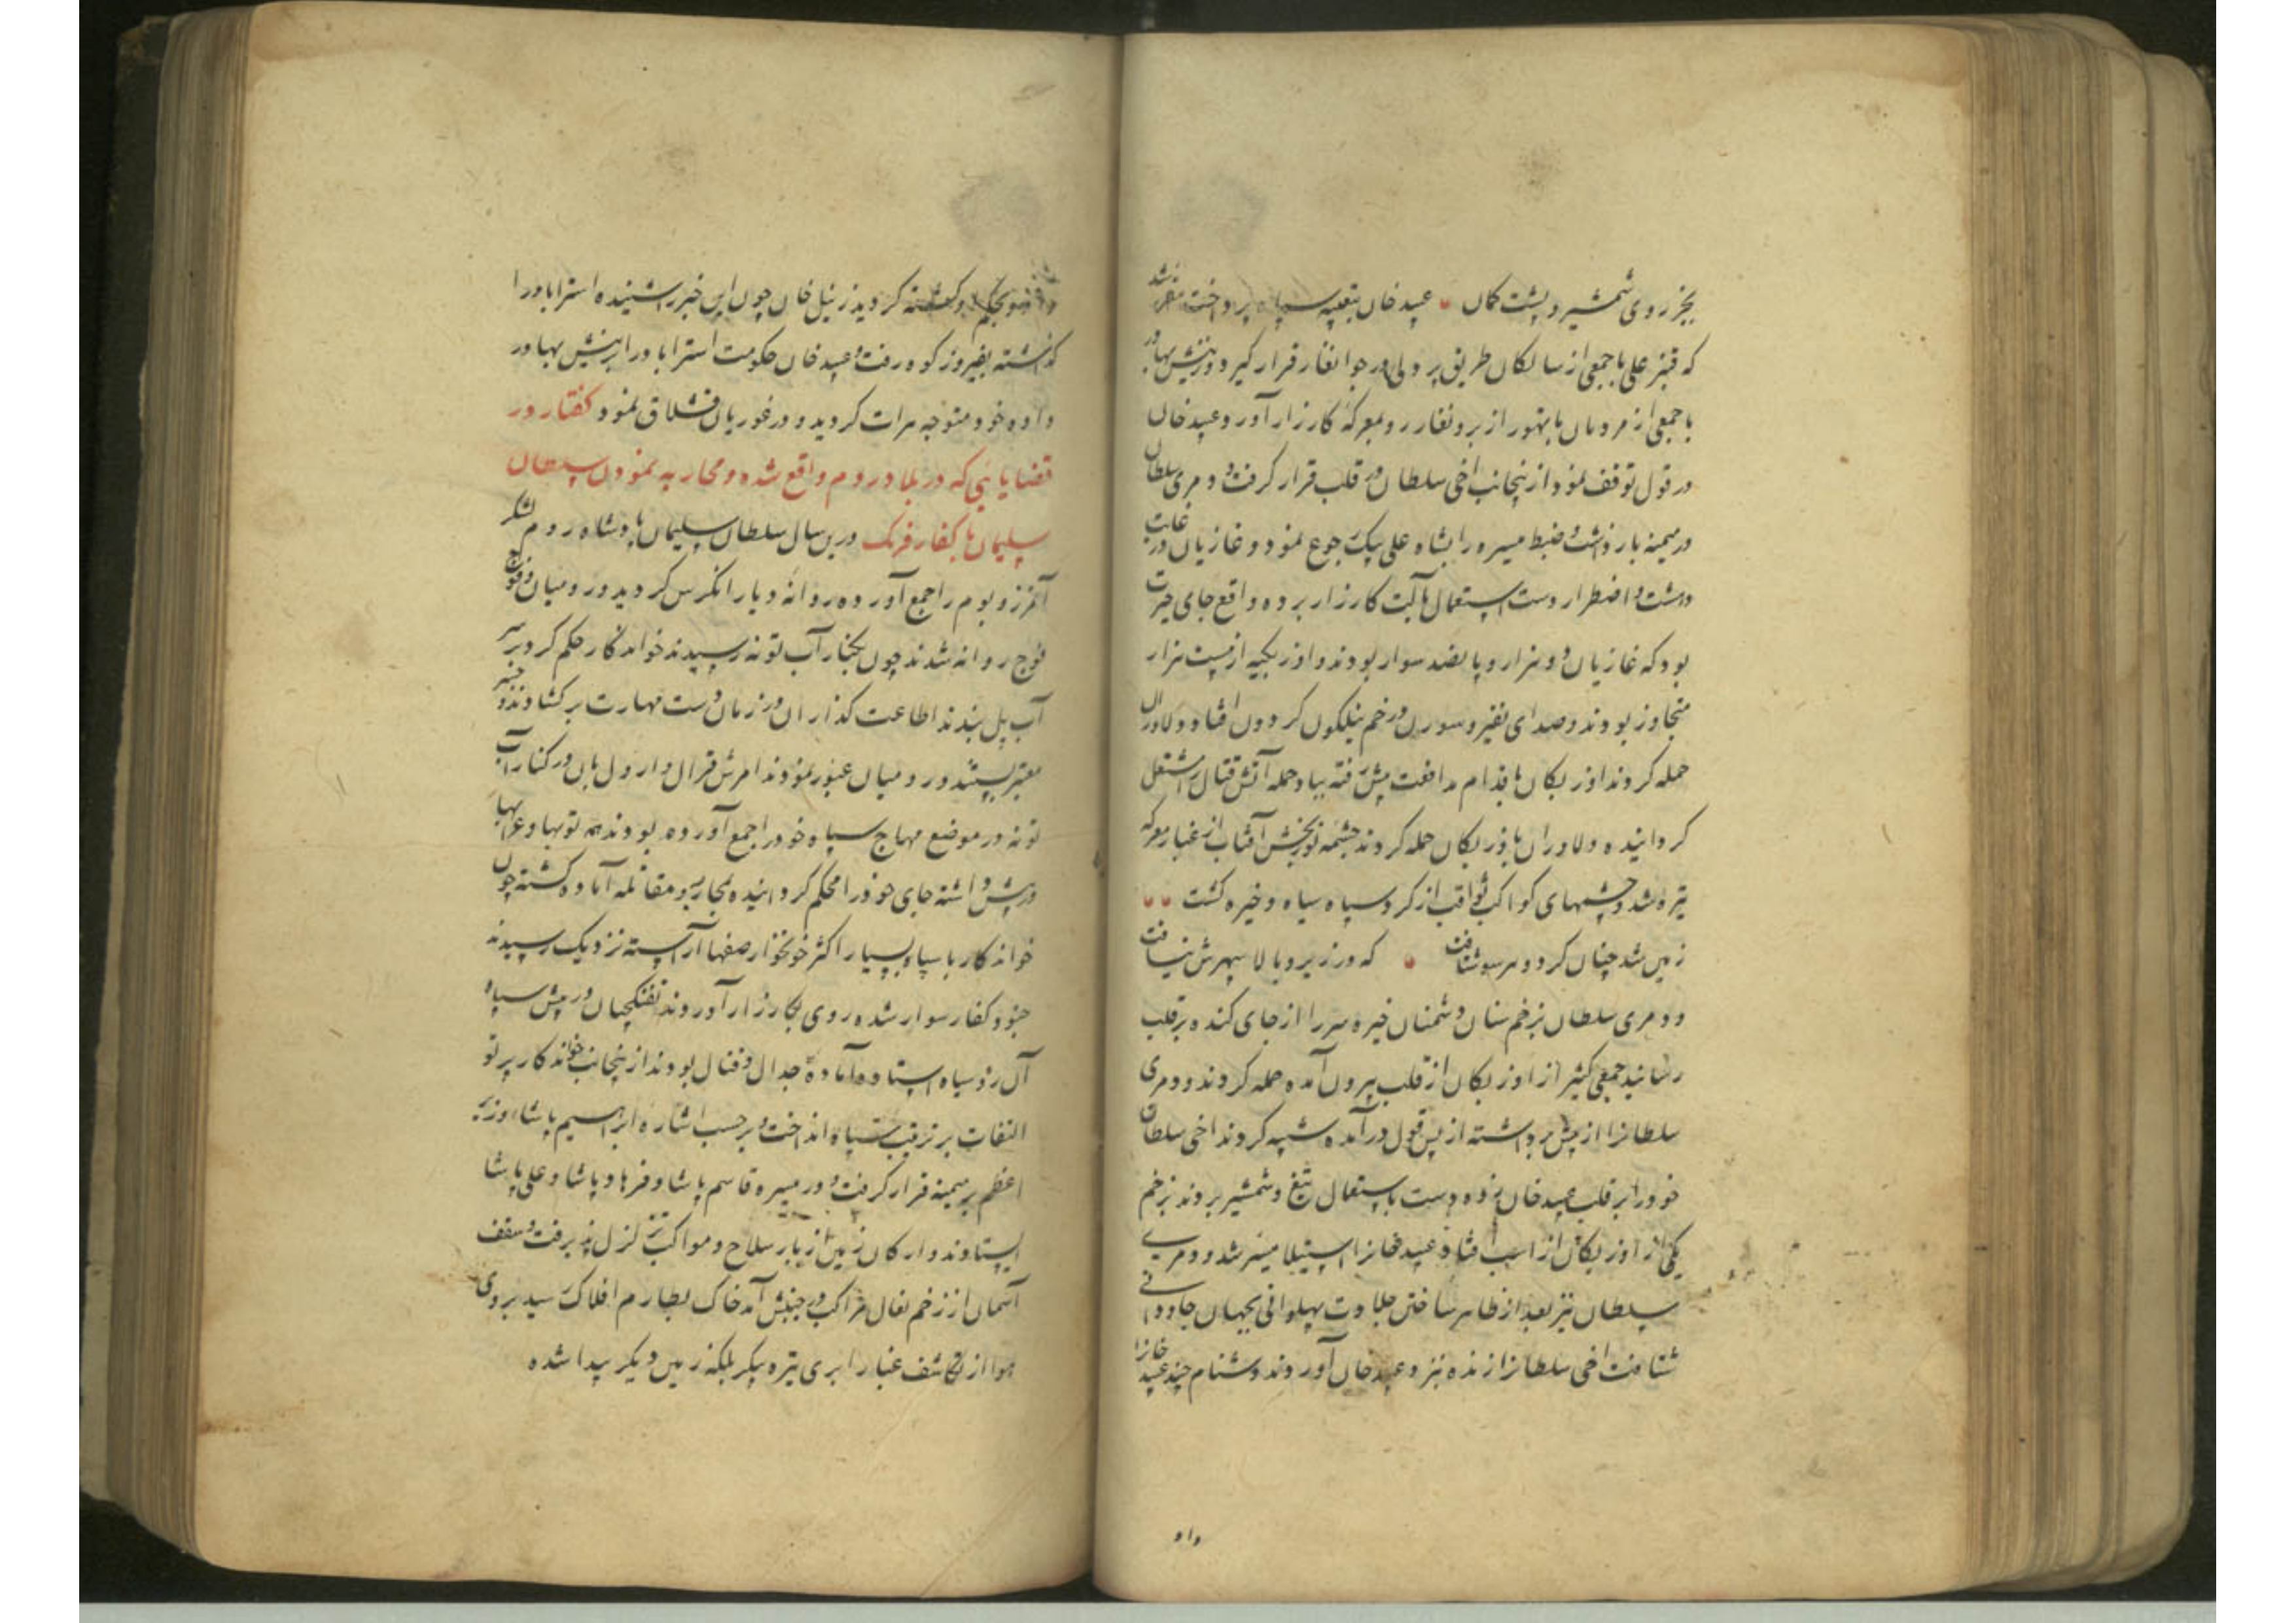 بجز روی شمشیر و پشت کمان عبید خان بتعبیه سپاه پرداخت مقرر شد
که قنبر علی با جمعی از سالکان طریق پر دلی در جوانغار قرار گیرد و زینش بهادر
با جمعی از مردمان با تهور از برونغار رو بمعرکه کارزار آورد و عبید خان
در قول توقف نمود ازینجانب اخی سلطان در قلب قرار گرفت و دمری سلطان
در میمنه باز داشت و ضبط میسره را بشاه علی بیک رجوع نمود و غازیان در غایت
دهشت و اضطرار دست استعمال بآلت کارزار برده واقع جای حیرت
بود که غازیان دو هزار و پانصد سوار بودند و اوزبکیه از بیست هزار
متجاوز بودند و صدای نفیر و سورن در خم نیلگون گردون افتاد و دلاوران
حمله کردند اوزبکان باقدام مدافعت پیش رفته بباد حمله آتش قتال را مشتعل
گردانیده دلاوران باوزبکان حمله کردند چشمه نوربخش آفتاب از غبار معرکه
تیره شد و چشمهای کواکب ثواقب از گرد سپاه سیاه و خیره گشت
زمین شد چنان گرد و هر سو شتافت که در زیر و بالا سپهرش نیافت
و دمری سلطان بزخم سنان دشمنان خیره سر را از جای کنده بر قلب
رسانید جمعی کثیر از اوزبکان از قلب بیرون آمده حمله کردند و دمری
سلطانرا از پیش برداشته از پس قول درآمده شپه کردند اخی سلطان
خود را بر قلب عبید خان زده دست باستعمال تیغ و شمشیر بردند بزخم
یکی از اوزبکان از اسب افتاد و عبید خانرا استیلا میسر شد و دمری
سلطان نیز بعد از ظاهر ساختن جلادت پهلوانی بجهان جاودانی
شتافت اخی سلطانرا زنده نزد عبید خان آوردند دشنام چند عبید خانرا
داد
کشته گردید زینل خان چون این خبر را شنیده استراباد را
گذاشته بفیروزکوه رفت و عبید خان حکومت استراباد را بزینش بهادر
داده خود متوجه هرات گردید و در غوریان قشلاق نمود گفتار در
قضایایی که در بلاد روم واقع شده و محاربه نمودن سلطان
سلیمان با کفار فرنک درین سال سلطان سلیمان پادشاه روم لشکر
آن مرز و بوم را جمع آورده روانه دیار انکرس گردید و رومیان فوج
فوج روانه شدند چون بکنار آب تونه رسیدند خواندگار حکم کرد بر سر
آب پل بندند اطاعت گذاران در زمان دست مهارت برگشادند و جسر
معتبر بستند و رومیان عبور نمودند امرش قرال و ارول بان در کنار آب
تونه در موضع مهاج سپاه خود را جمع آورده بودند همه توپها و عرابها
در پیش داشته جای خود را محکم گردانیده بمحاربه و مقاتله آماده گشته چون
خواندگار با سپاه بسیار اکثر خونخوار صفها آراسته نزدیک رسیدند
جنود کفار سوار شده روی بکارزار آوردند تفنگچیان در پیش سپاه
آن روسیاه ایستاده آماده جدال و قتال بودند ازینجانب خواندگار پرتو
التفات بر ترتیب سپاه انداخت و برحسب اشاره ابراهیم پاشا وزیر
اعظم بر میمنه قرار گرفت و در میسره قاسم پاشا و فرهاد پاشا و علی پاشا
ایستادند و ارکان زمین از بار سلاح و مواکب تزلزل پذیرفت و سقف
آسمان از زخم نعال مراکب در جنبش آمد خاک بطارم افلاک رسید بر روی
هوا از تکاثف غبار ابری تیره پیکر بلکه زمین دیگر پیدا شده